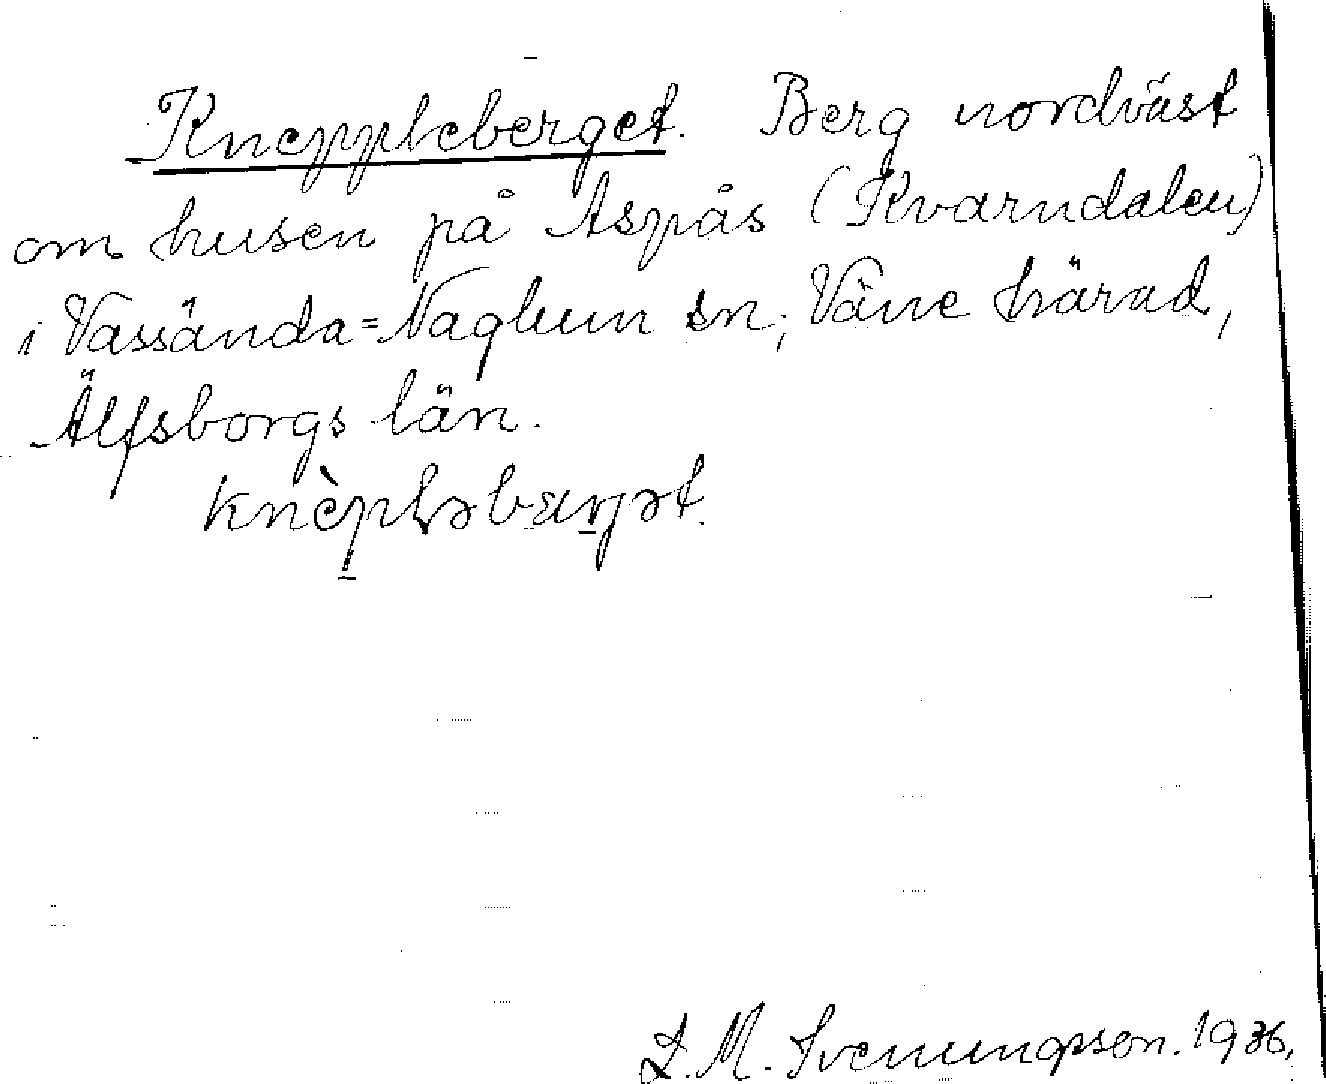 Kneppleberget. Berg nordväst
om husen på Aspås (Kvarndalen)
i Vassända=Naglum sn; Väne härad,
Älfsborgs län.
L. M. Svenungsson. 1936.